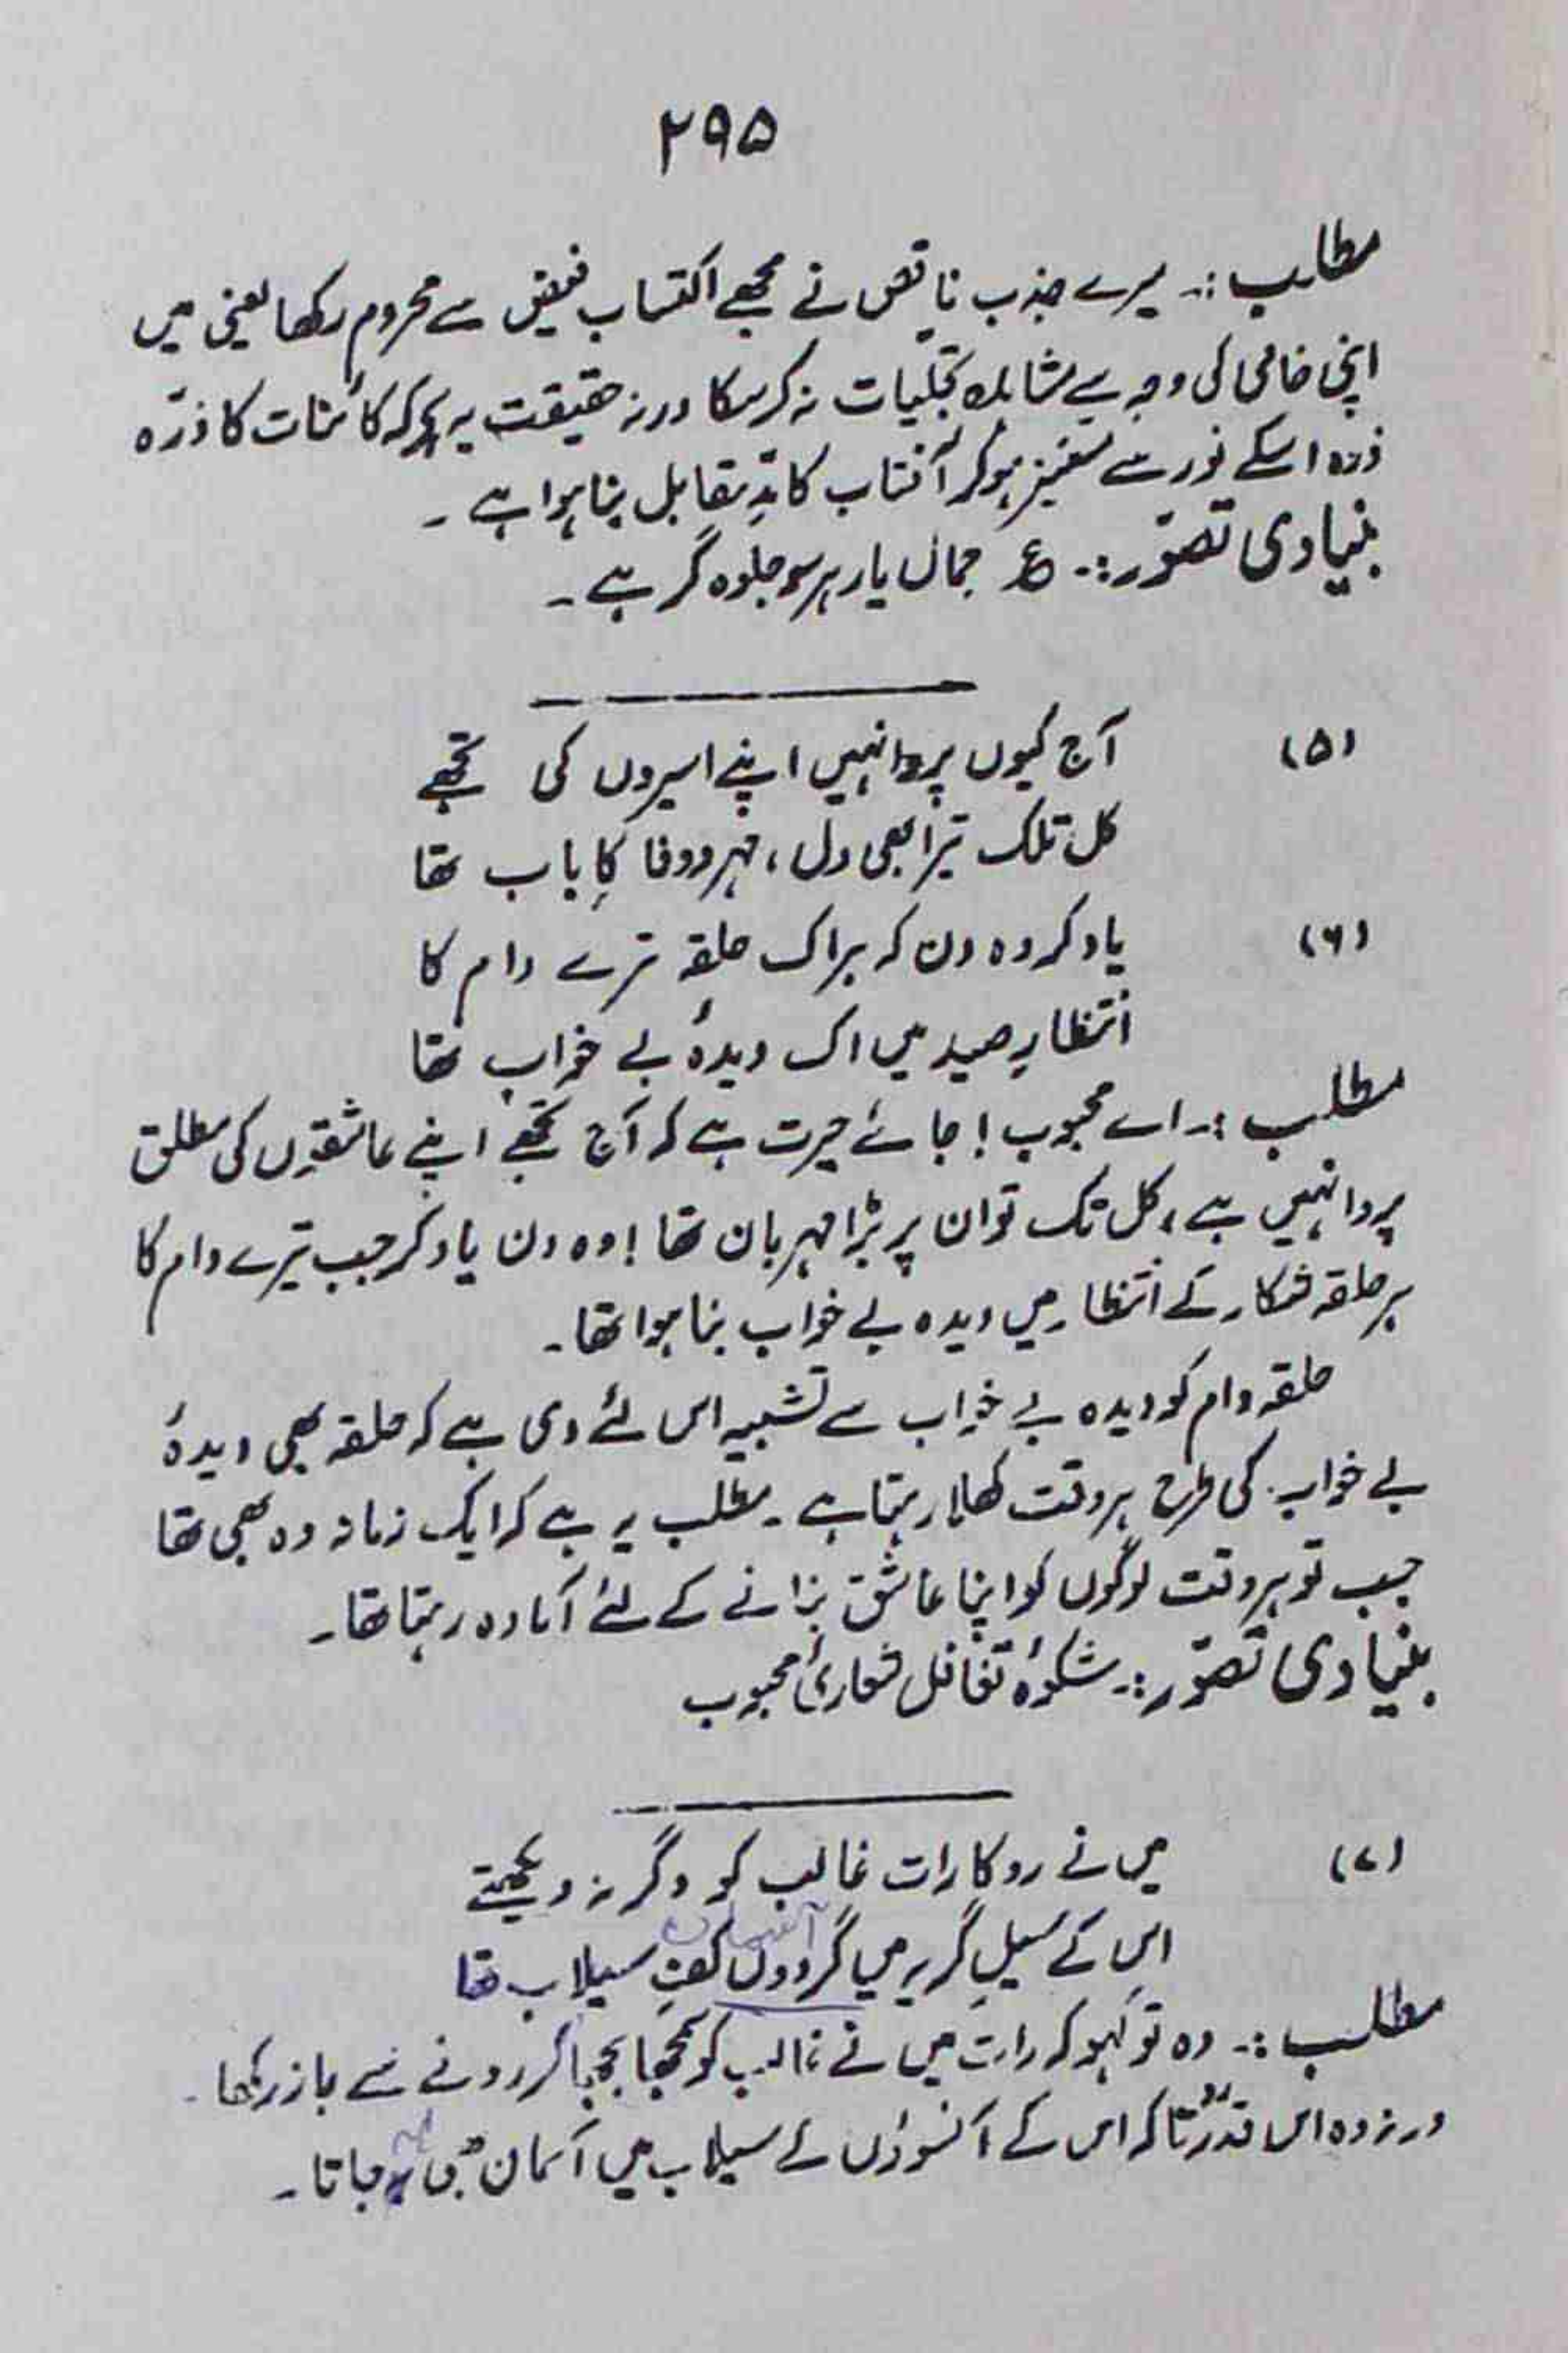 ۲۹۵
مطلب :۔ میرے جذب ناقص نے مجھے اکتساب فیض سے محروم رکھا یعنی میں
اپنی خامی کی وجہ سے مشاہدہ تجلیات نہ کرسکا ورنہ حقیقت یہ ہے کہ کائنات کا ذرّہ
ذرہ اسکے نور سے مستنیر ہوکر آفتاب کا مدِّ مقابل بنا ہوا ہے ۔
بنیادی تصوّر :۔ ع جمال یار ہر سو جلوہ گر ہے ۔
(۵) آج کیوں پروا نہیں اپنے اسیروں کی تجھے
کل تلک تیرا بھی دل ، مہر و وفا کا باب تھا
(۶) یاد کر وہ دن کہ ہر اک حلقہ ترے دام کا
انتظارِ صید میں اک دیدۂ بے خواب تھا
مطلب :۔ اے محبوب ! جائے حیرت ہے کہ آج تجھے اپنے عاشقوں کی مطلق
پروا نہیں ہے ، کل تک تو ان پر بڑا مہربان تھا ! وہ دن یاد کر جب تیرے دام کا
ہر حلقہ شکار کے انتظار میں دیدہ بے خواب بنا ہوا تھا ۔
حلقہ دام کو دیدہ بے خواب سے تشبیہ اس لئے دی ہے کہ حلقہ بھی دیدۂ
بے خواب کی طرح ہر وقت کھلا رہتا ہے ۔ مطلب یہ ہے کہ ایک زمانہ وہ بھی تھا
جب تو ہر وقت لوگوں کو اپنا عاشق بنانے کے لئے آمادہ رہتا تھا ۔
بنیادی تصوّر :۔ شکوۂ تغافل شعاریٔ محبوب
(۷) میں نے روکا رات غالب کو وگر نہ دیکھتے
اس کے سیلِ گریہ میں گردوں کفِ سیلاب تھا
مطلب :۔ وہ تو کہو کہ رات میں نے غالب کو سمجھا بجھا کر رونے سے باز رکھا ۔
ورنہ وہ اس قدر روتا کہ اس کے آنسوؤں کے سیلاب میں آسمان بھی بہہ جاتا ۔